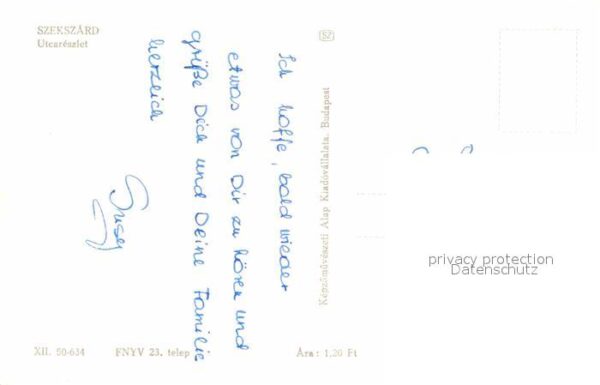 SZEKSZÁRD
Utcarészlet
Ich hoffe, bald wieder
etwas von Dir zu hören und
grüße Dich und Deine Familie
herzlich
Képzőművészeti Alap Kiadóvállalata, Budapest
privacy protection
Datenschutz
XII. 50-634
FNYV 23. telep
Ára: 1,20 Ft